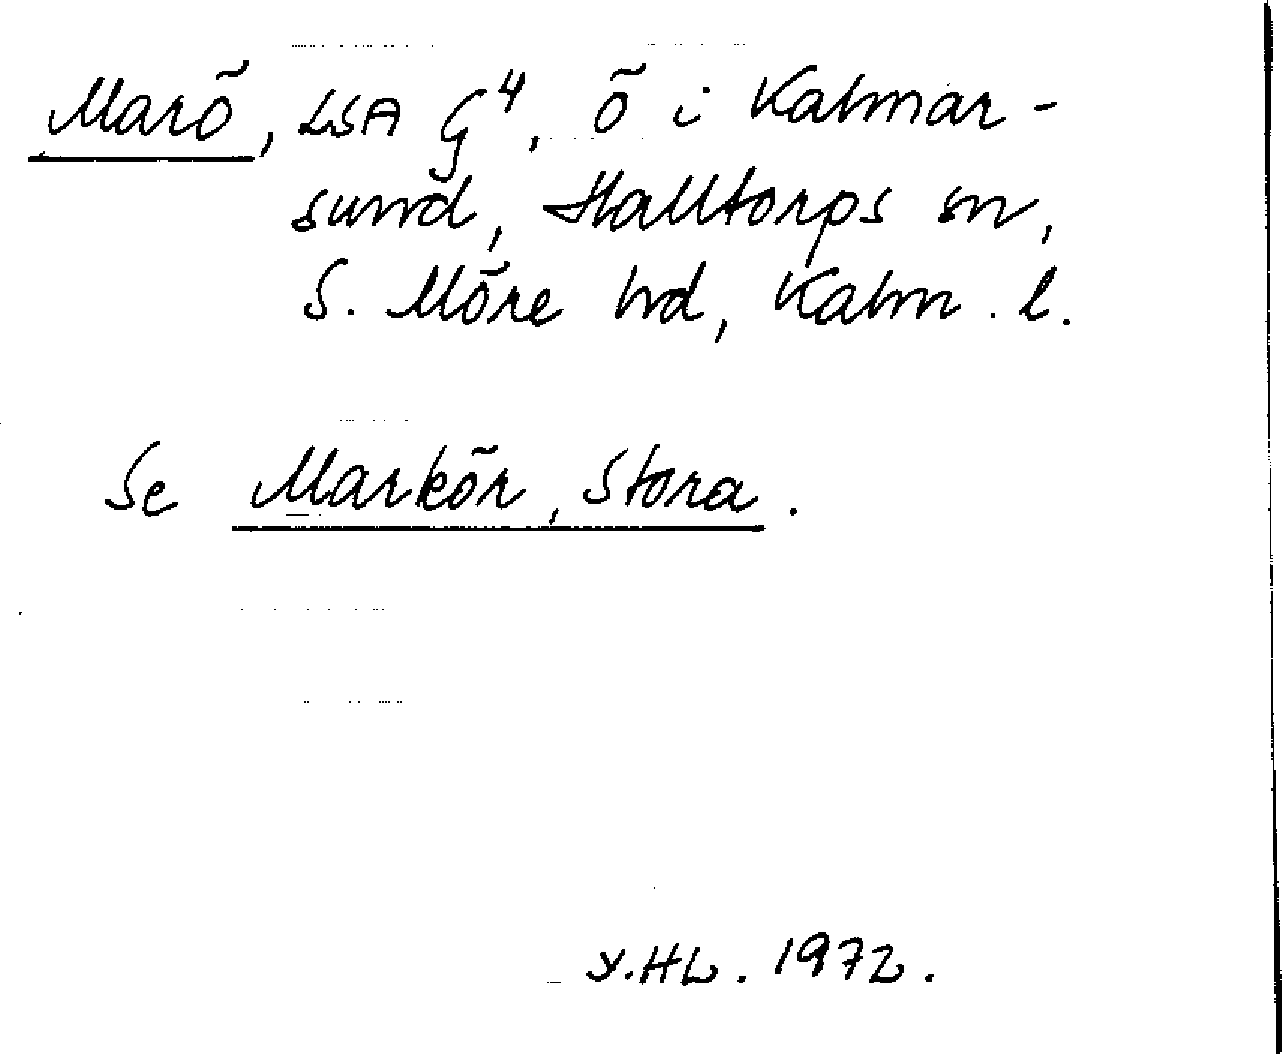 Marö, LSA G⁴, ö i Kalmar-
sund, Halltorps sn,
S. Möre hd, Kalm. l.
Se Markör, Stora.
Y.HL. 1972.